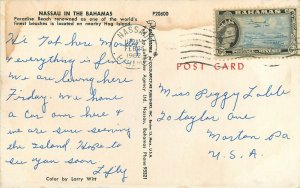 NASSAU IN THE BAHAMAS
Paradise Beach renowned as one of the world's
finest beaches is located on nearby Hog Island.
P20600
Hi Got here Monday
everything is fine.
We are leaving here
Friday. We have
a car over here &
we are sure seeing
the Island. Hope to
see you soon.
Color by Larry Witt
NASSAU
BAHAMAS
POST CARD
Miss Peggy Loble
20 Taylor Ave
Morton Pa
U.S.A.